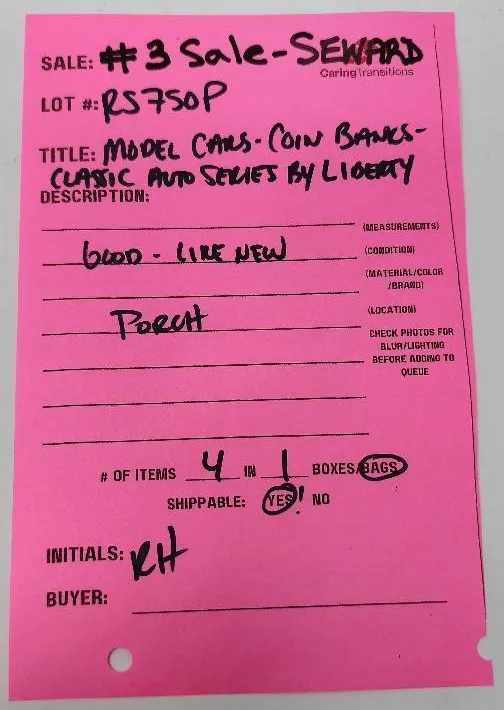 SALE: #3 Sale-SEWARD
CaringTransitions
LOT #: RS750P
TITLE: MODEL CARS-COIN BANKS-
CLASSIC AUTO SERIES BY LIBERTY
DESCRIPTION:
(MEASUREMENTS)
GOOD - LIKE NEW (CONDITION)
(MATERIAL/COLOR
/BRAND)
PORCH (LOCATION)
CHECK PHOTOS FOR
BLUR/LIGHTING
BEFORE ADDING TO
QUEUE
# OF ITEMS 4 IN 1 BOXES/BAGS
SHIPPABLE: YES! NO
INITIALS: RH
BUYER: